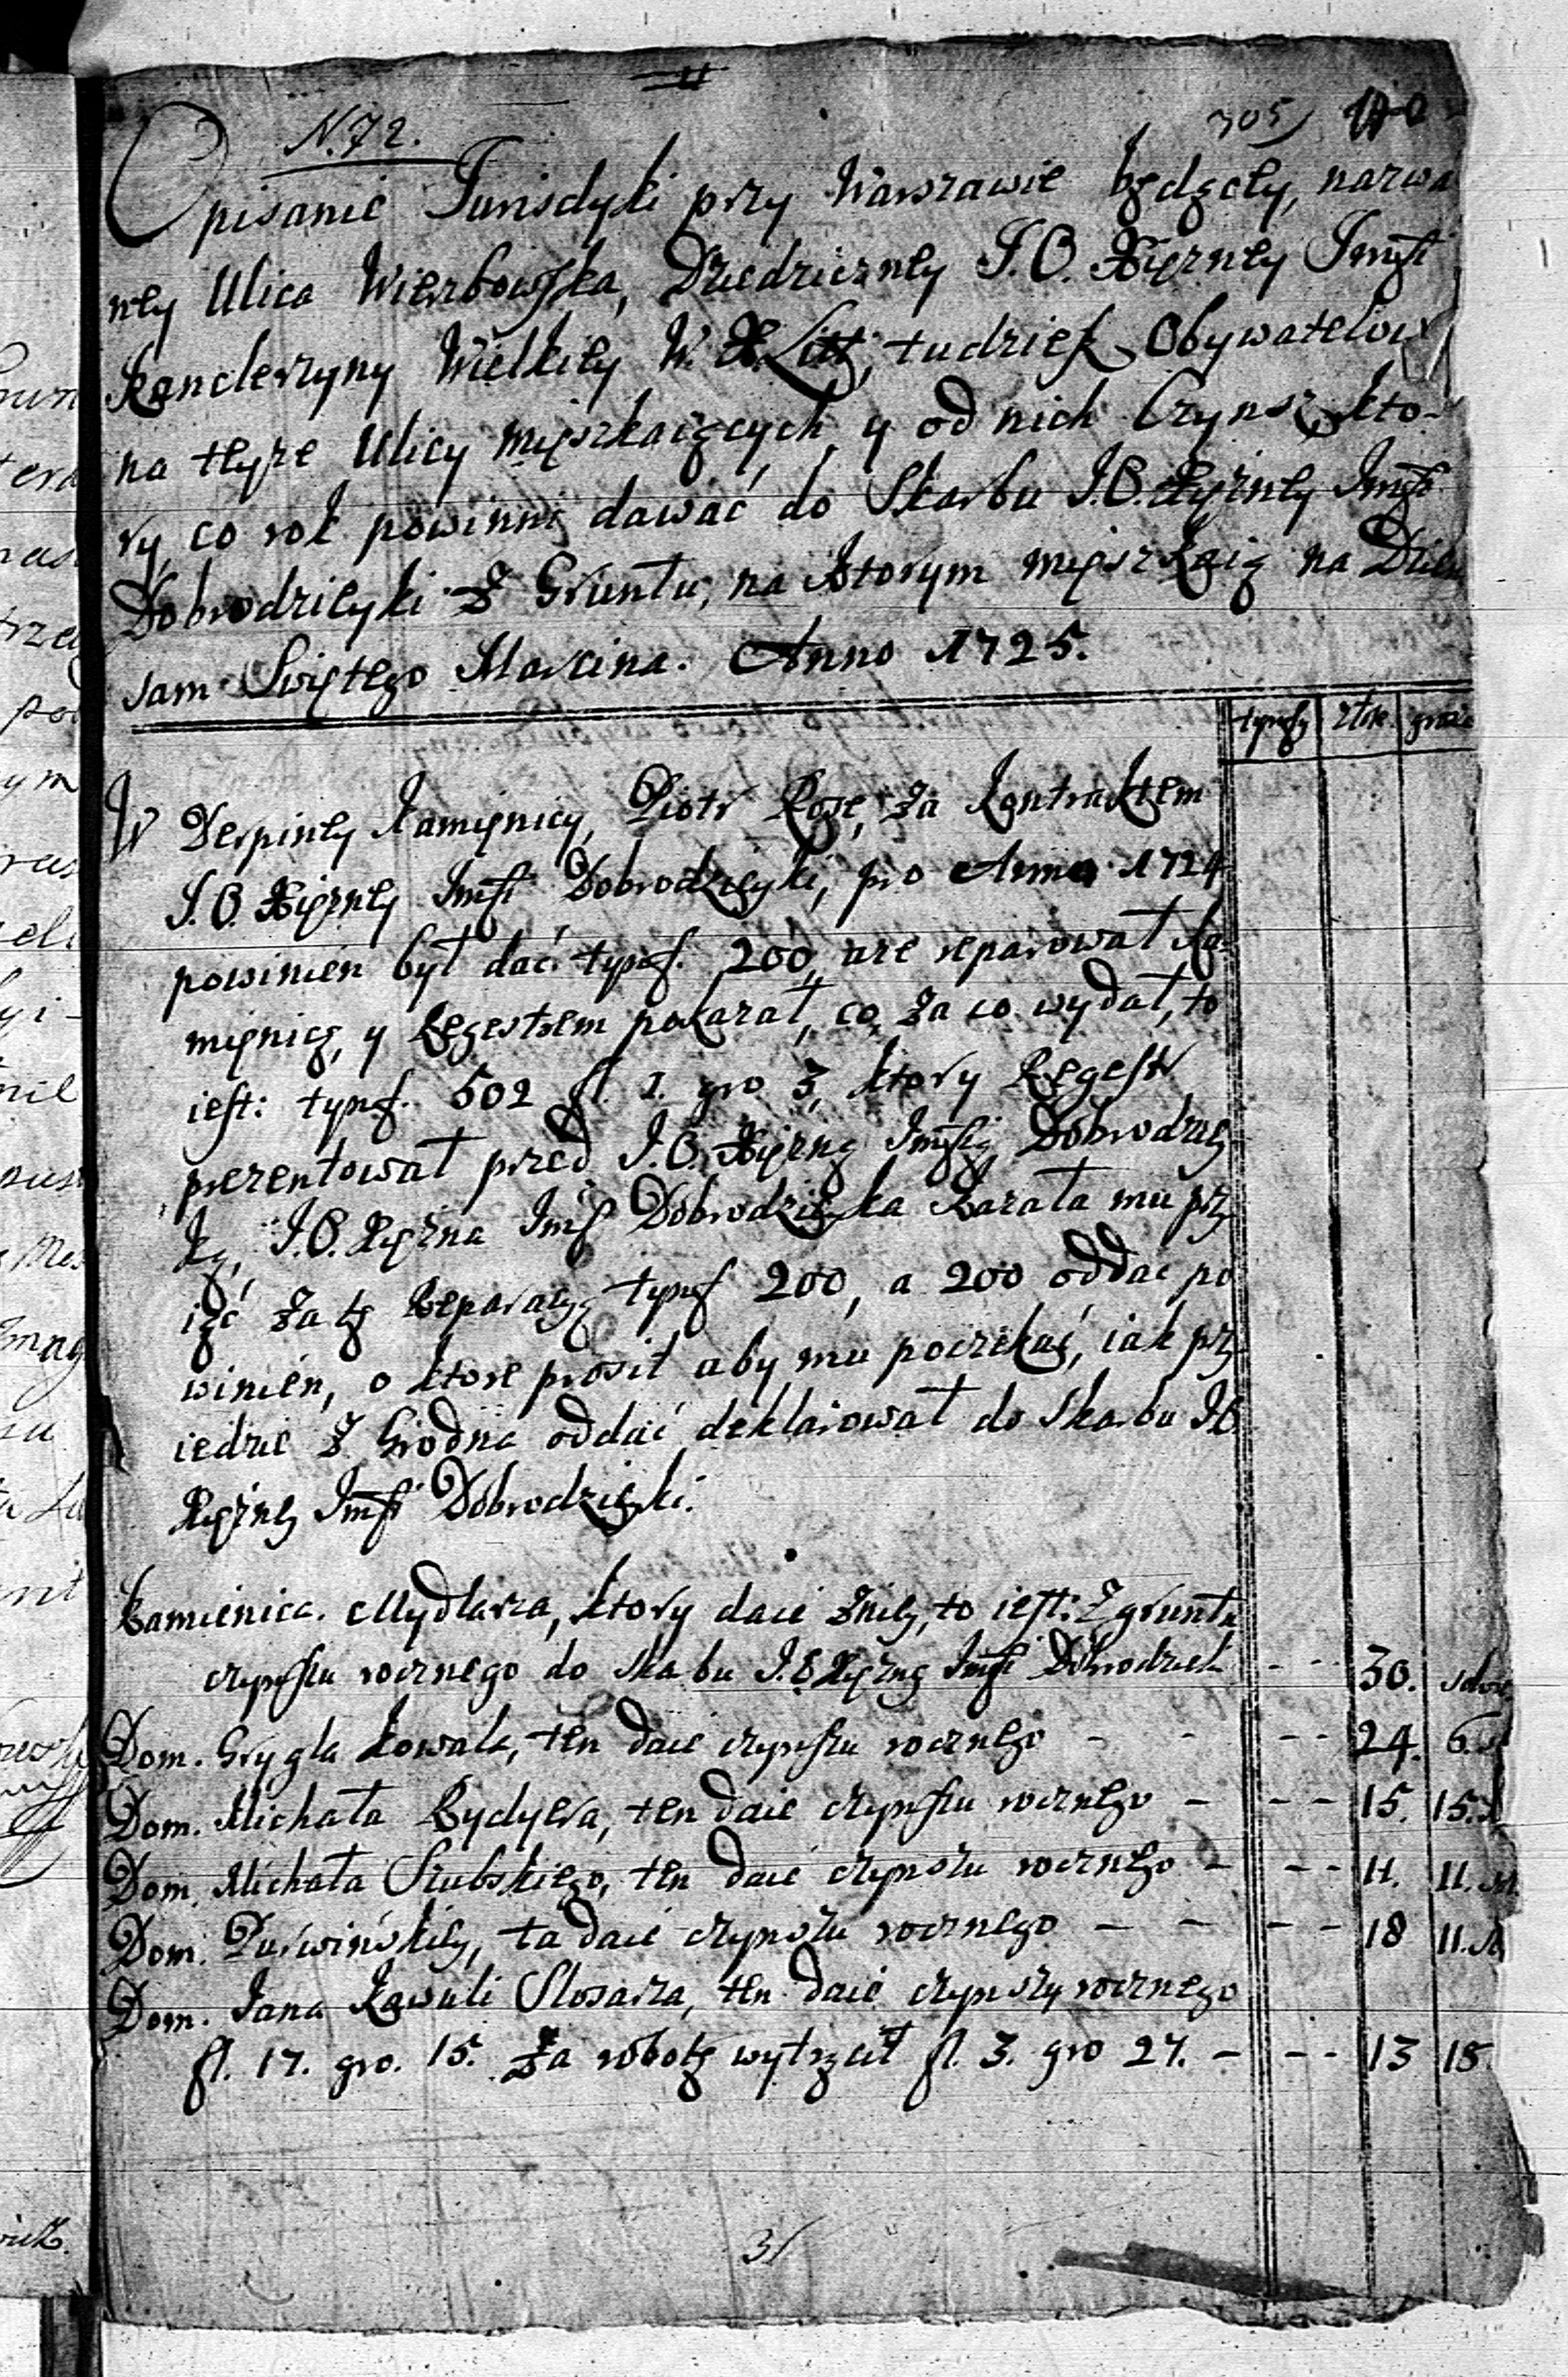 N. 72. 305
Opisanie Jurisdyki przy Warszawie będącły, nazwa
nły Ulica Wierzbowska, Dziedzicznły J. O. Xiężnły Jmśł
Kanclerzyny Wielkiły W. X. Litt, tudzież Obywatelow
na tłyże Ulicy mięszkaiących, y od nich Czynsz, kto-
ry, co rok powinni dawać do Skarbu J. O. Xiężnły Jmśł
Dobrodziłyki z Gruntu, na ktorym mięszkaią na Dzień
sam Swiętego Marcina. Anno 1725.
tynfy złote grosze
W Derpinły Kamięnicy, Piotr Rose, za Kontraktem
J. O. Xiężnły Jmśł Dobrodzieyki, pro Anno 1724
powinien był dać tynf. 200, aże reparował Ka-
mięnicę, y Regestrem pokazał, co, za co wydał, to
iest: tynf. 502 fl. 1. gro 3, ktory Regestr
prezentował przed J. O. Xiężną Jmścią Dobrodziey-
ką, J. O. Xiężna Jmść Dobrodzieyka kazała mu prz
iąć za tę Reparacyę tynf 200, a 200 oddać po
winien, o ktore prosił aby mu poczekać, iak prz
iedzie z Grodna oddać deklarował do Skarbu J. O.
Xiężnły Jmśł Dobrodzieyki.
Kamienica. Mydlarza, ktory daie zniey, to iest: z gruntu
czynszu rocznego do Skarbu J. O. Xiężną Jmśł Dobrodzieik - - 30.
Dom. Grygla Kowala, ten daie czynszu rocznego - - - - 24. 6.
Dom. Michała Rydyera, ten daie czynszu rocznego - - - 15. 15.
Dom. Michała Szubskiego, ten daie czynszu rocznego - - - 11. 11.
Dom. Purwińskiey, ta daie czynszu rocznego - - - - 18 11.
Dom. Jana Kawuli Slosarza, ten daie czynszu rocznego
fl. 17. gro. 15. Za robotę wytrącił fl. 3. gro 27. - - - 13 18
31